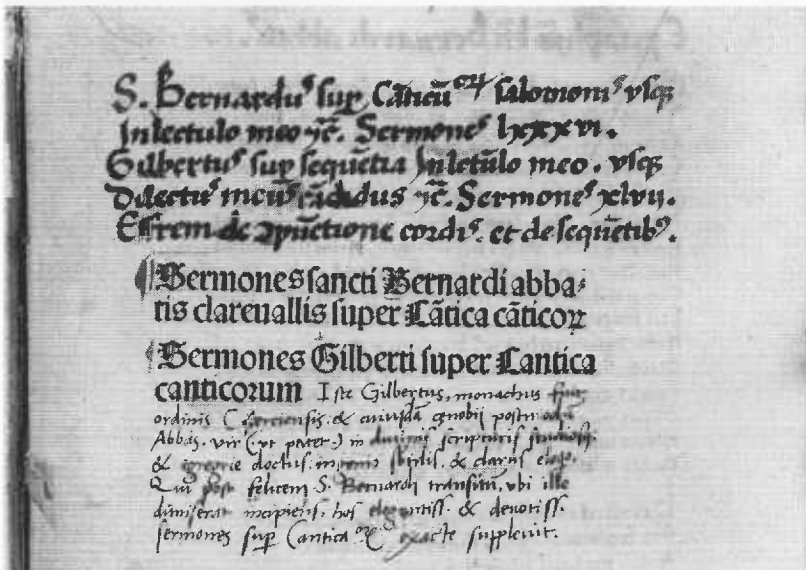 S. Bernarduꝰ sup Cāticū coꝝ salomoniꝰ vsqꝫ
In lectulo meo ⁊c̄. Sermoneꝰ lxxxvi.
Gilbertuꝰ sup sequētia In lectulo meo. vsqꝫ
Dilectuꝰ meuꝰ cādidus ⁊c̄. Sermoneꝰ xlvii.
Effrem de ꝯpūctione cordiꝰ. et de sequētibꝰ.
¶ Sermones sancti Bernardi abba⸗
tis clareuallis super Cātica cāticoꝝ
¶ Sermones Gilberti super Cantica
canticorum Iste Gilbertus, monachus fuit
ordinis Cisterciensis. & cuiusdā cęnobij postmodū
Abbas. vir (vt patet) in diuinis scripturis studiosꝰ.
& egregie doctus. ingenio subtilis. & clarus eloqꝰ.
Qui post felicem S. Bernardi transitū, vbi ille
dimiserat incipiens. hos elegantiss. & deuotiss.
sermones sup Cantica exacte suppleuit.